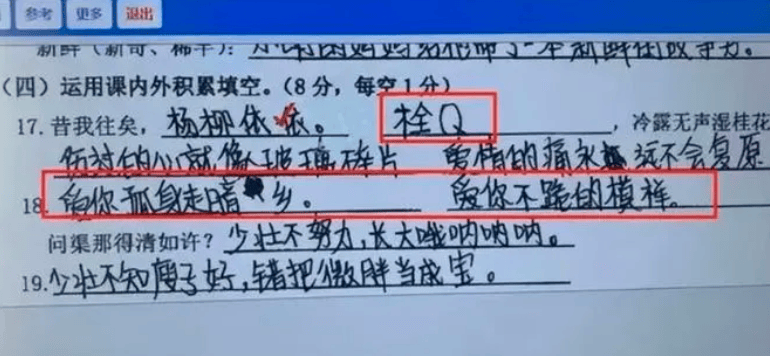 参考 更多 退出
新鲜（新奇、稀罕）：
（四）运用课内外积累填空。（8分，每空1分）
17.昔我往矣，杨柳依依。 栓Q，冷露无声湿桂花
伤过的心就像玻璃碎片 爱情的痛永远不会复原
18.爱你孤身走暗乡。 爱你不跪的模样。
问渠那得清如许？少壮不努力，长大哦呐呐呐。
19.少壮不知瘦子好，错把微胖当成宝。